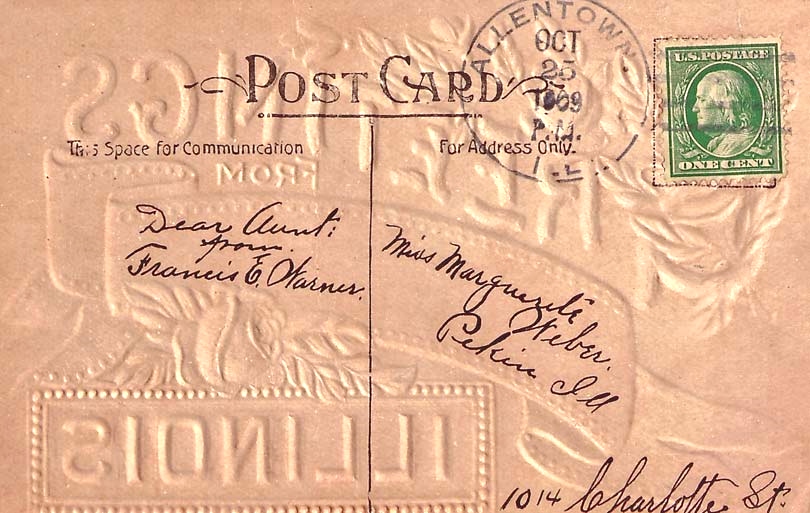 POST CARD
This Space for Communication
For Address Only.
ALLENTOWN
OCT
25
1909
P.M.
ILL.
U.S. POSTAGE
ONE CENT
Dear Aunt:
from
Francis E. Warner.
Miss Marguerite
Weber.
Pekin Ill
1014 Charlotte St.
GREETINGS
FROM
ILLINOIS